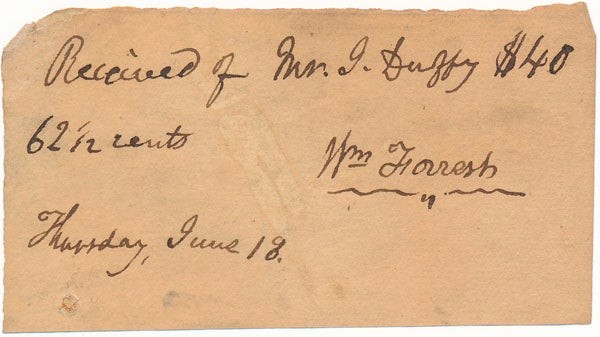 Received of Mr. J. Duffy $40
62 1/2 cents
Wm Forrest
Thursday, June 18.